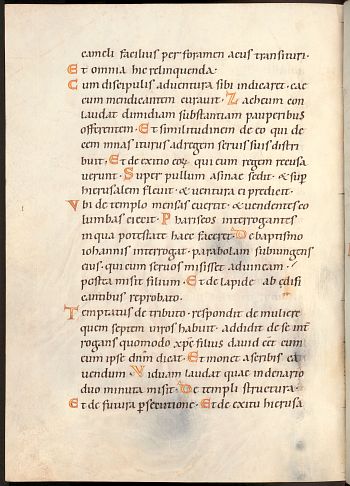 cameli facilius per foramen acus transituri.
Et omnia hic relinquenda.
Cum discipulis adventura sibi indicaret. cae
cum mendicantem curavit. Zacheum con
laudat dimidiam substantiam pauperibus
offerentem. Et similitudinem de eo qui de
cem mnas iturus adregem servis suis distri
buit. Et de exitio eoꝝ qui eum regem recusa
verunt. Super pullum asinae sedit. & sup
hierusalem flevit. & ventura ei predicit.
Vbi de templo mensas evertit. & vendentes co
lumbas eiecit. Phariseos interrogantes
in qua potestate haec faceret. De baptismo
iohannis interrogat. parabolam subiungens
eius. qui cum servos misisset ad vineam.
posita misit filium. Et de lapide ab edifi
cantibus reprobato.
Temptatus de tributo. respondit de muliere
quem septem viros habuit. addidit de se int
rogans quomodo xp̄c filius david est cum
eum ipse dn̄m dicat. Et monet a scribis ca
vendum. Viduam laudat quae in denario
duo minuta misit. De templi structura.
Et de futura ꝑsecutione. Et de exitu hierusa